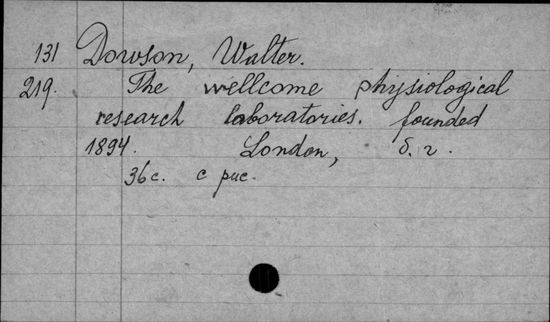 131 Dowson, Walter.
219. The wellcome physiological
research laboratories. founded
1894. London, б. г.
36 с. с рис.